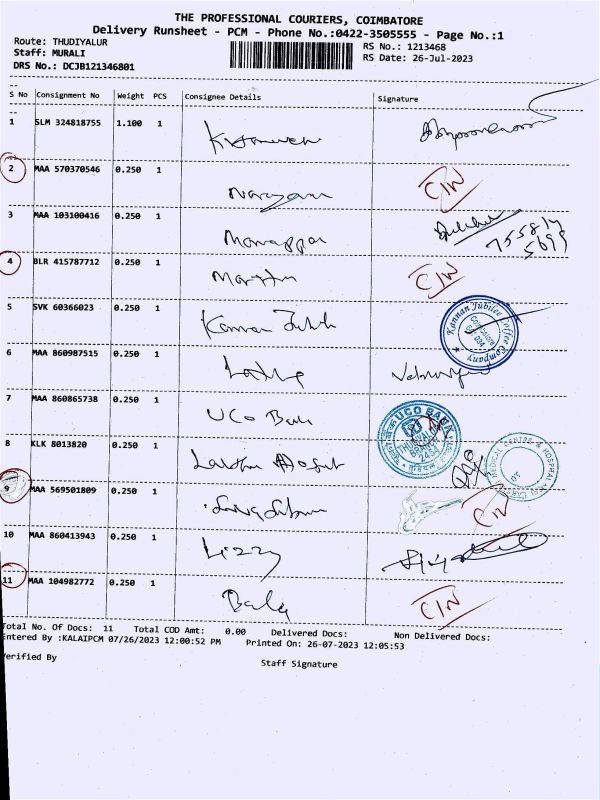 THE PROFESSIONAL COURIERS, COIMBATORE
Delivery Runsheet - PCM - Phone No.:0422-3505555 - Page No.:1
Route: THUDIYALUR
RS No.: 1213468
Staff: MURALI
RS Date: 26-Jul-2023
DRS No.: DCJB121346801
S No Consignment No Weight PCS Consignee Details Signature
1 SLM 324818755 1.100 1
2 MAA 570370546 0.250 1 Narayani C/N
3 MAA 103100416 0.250 1 755817
5699
4 BLR 415787712 0.250 1 C/N
5 SVK 60366023 0.250 1 Kannan Jubile Kannan Jubilee Coffee Company
6 MAA 860987515 0.250 1
7 MAA 860865738 0.250 1 UCO Bank UCO BANK
8 KLK 8013820 0.250 1 MEDICAL CENTRE & HOSPITAL
9 MAA 569501809 0.250 1 C/N
10 MAA 860413943 0.250 1 Lizzy
11 MAA 104982772 0.250 1 Bala C/N
Total No. Of Docs: 11 Total COD Amt: 0.00 Delivered Docs: Non Delivered Docs:
Entered By :KALAIPCM 07/26/2023 12:00:52 PM Printed On: 26-07-2023 12:05:53
Verified By Staff Signature